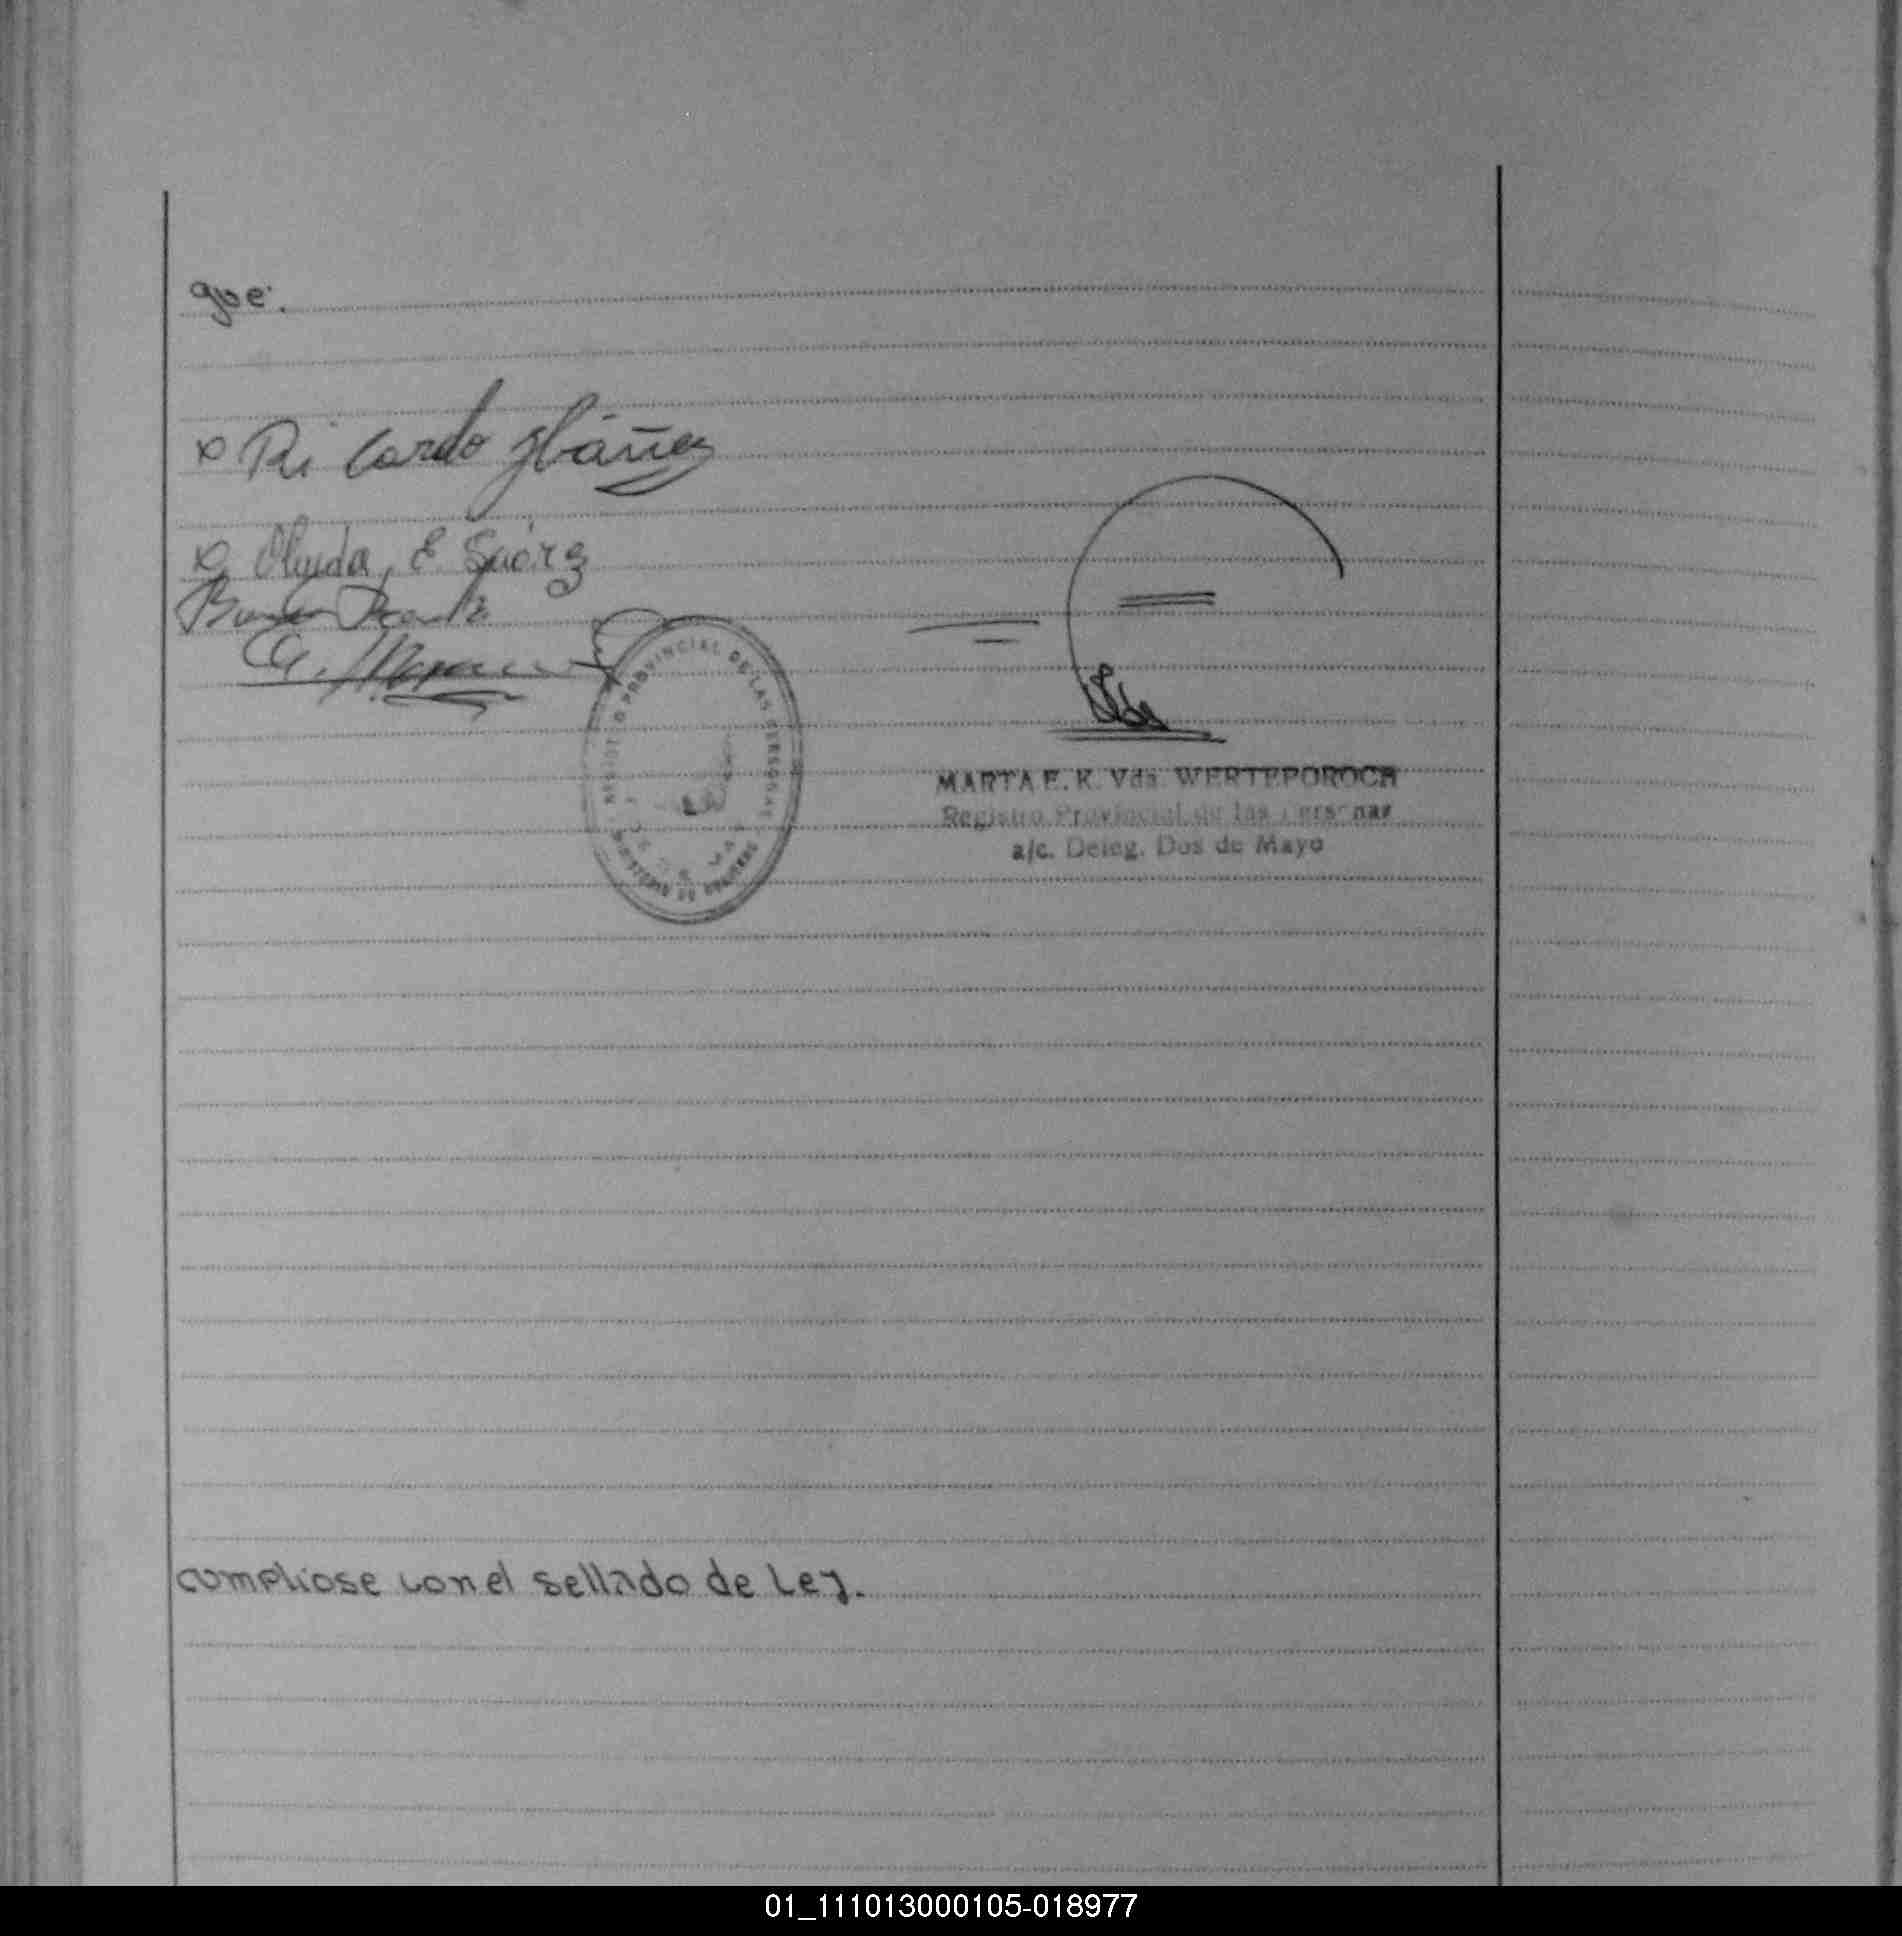 que.
x Ricardo Ibáñez
x Olgida, E. Suórez
REGISTRO PROVINCIAL DE LAS PERSONAS
MINISTERIO DE GOBIERNO
MARTA E. K. Vda. WERTEPOROCH
Registro Provincial de las Personas
a/c. Deleg. Dos de Mayo
cumpliose con el sellado de Ley.
01_111013000105-018977